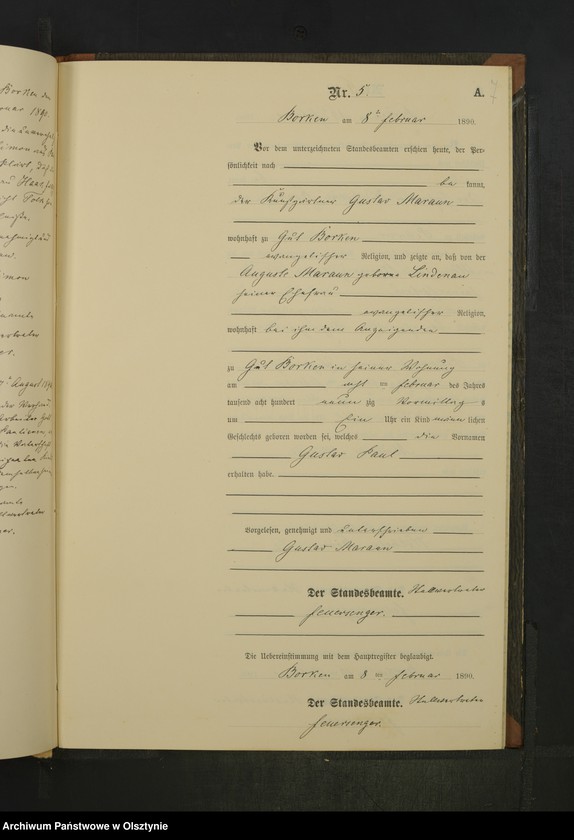 Nr. 5.
A.
7
Borken am 8 Februar 1890.
Vor dem unterzeichneten Standesbeamten erschien heute, der Per-
sönlichkeit nach
be kannt,
der Kunstgärtner Gustav Maraun
wohnhaft zu Gut Borken
evangelischer Religion, und zeigte an, daß von der
Auguste Maraun geborene Lindenau
seiner Ehefrau
evangelischer Religion,
wohnhaft bei ihm dem Anzeigenden
zu Gut Borken in seiner Wohnung
am acht Februar des Jahres
tausend acht hundert neun zig Vormittag s
um Ein Uhr ein Kind männ lichen
Geschlechts geboren worden sei, welches die Vornamen
Gustav Paul
erhalten habe.
Vorgelesen, genehmigt und unterschrieben
Gustav Maraun
Der Standesbeamte.
Feuersenger.
Die Uebereinstimmung mit dem Hauptregister beglaubigt.
Borken am 8 Februar 1890.
Der Standesbeamte.
Feuersenger.
Archiwum Państwowe w Olsztynie